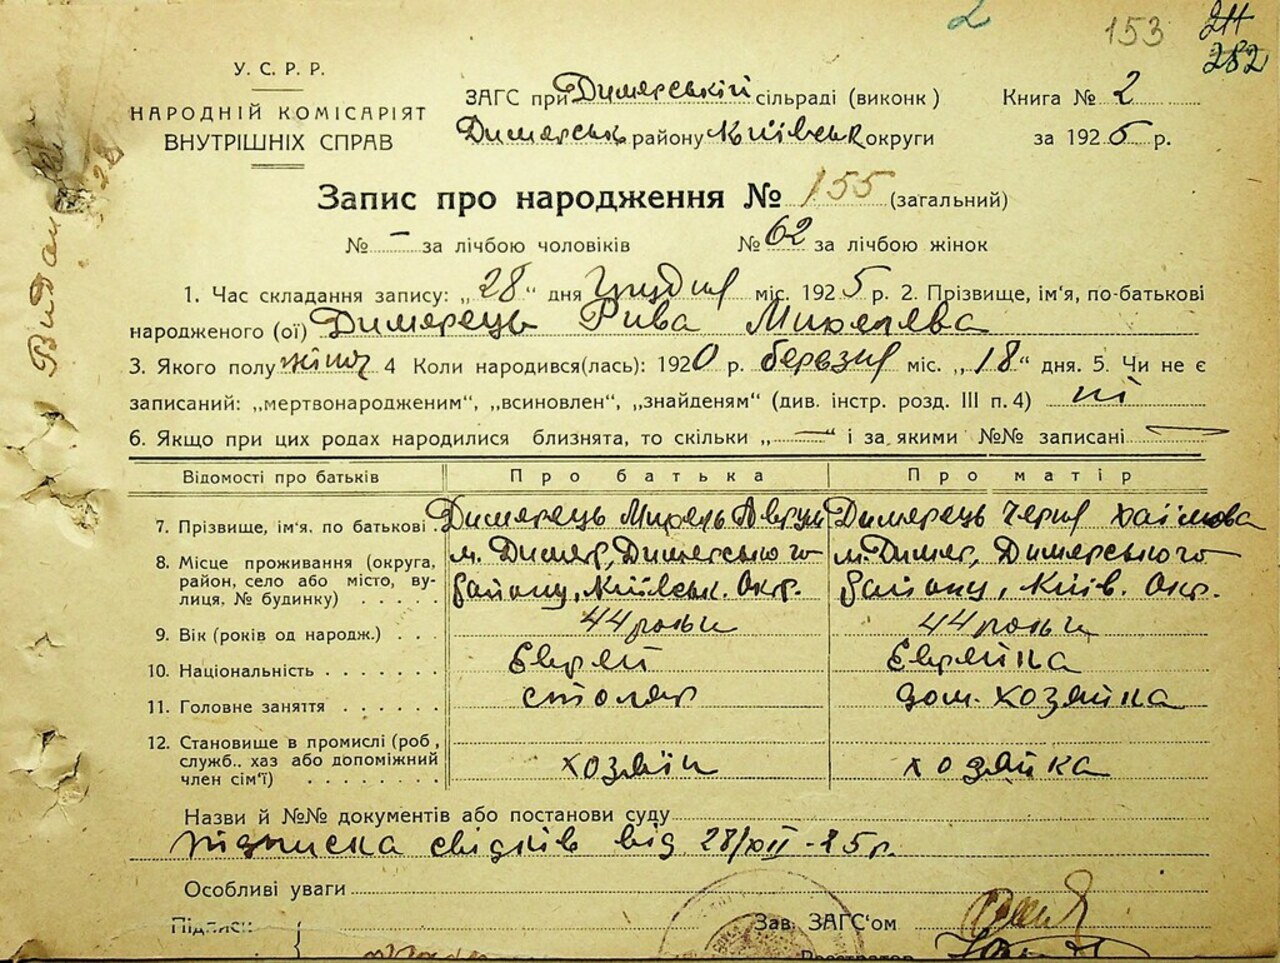 2 153 211
282
У. С. Р. Р.
НАРОДНІЙ КОМІСАРІЯТ
ВНУТРІШНІХ СПРАВ
ЗАГС при Димерській сільраді (виконк) Книга № 2
Димерськ району Київськ округи за 1925 р.
Запис про народження № 155 (загальний)
№ — за лічбою чоловіків № 62 за лічбою жінок
1. Час складання запису: „28" дня Грудня міс. 1925 р. 2. Прізвище, ім'я, по-батькові
народженого (ої) Димерець Рива Мирелева
3. Якого полу жіноч 4 Коли народився(лась): 1920 р. березня міс. „18" дня. 5. Чи не є
записаний: „мертвонародженим", „всиновлен", „знайденям" (див. інстр. розд. III п. 4) ні
6. Якщо при цих родах народилися близнята, то скільки „—" і за якими №№ записані —
Відомості про батьків Про батька Про матір
7. Прізвище, ім'я, по батькові. Димерець Мирель Аврум Димерець Черня Хаімова
8. Місце проживання (округа, м. Димер, Димерського м. Димер, Димерського
район, село або місто, ву-
лиця, № будинку) району, Київськ. Окр. району, Київ. Окр.
9. Вік (років од народж.) 44 роки 44 роки
10. Національність Єврей Єврейка
11. Головне заняття столяр дом. хозяйка
12. Становище в промислі (роб,
служб.. хаз або допоміжний хозяїн хозяйка
член сім'ї)
Назви й №№ документів або постанови суду
підписка свідків від 28/XII-25 р.
Особливі уваги
Підписи Зав. ЗАГС'ом
Реєстратор
Видан